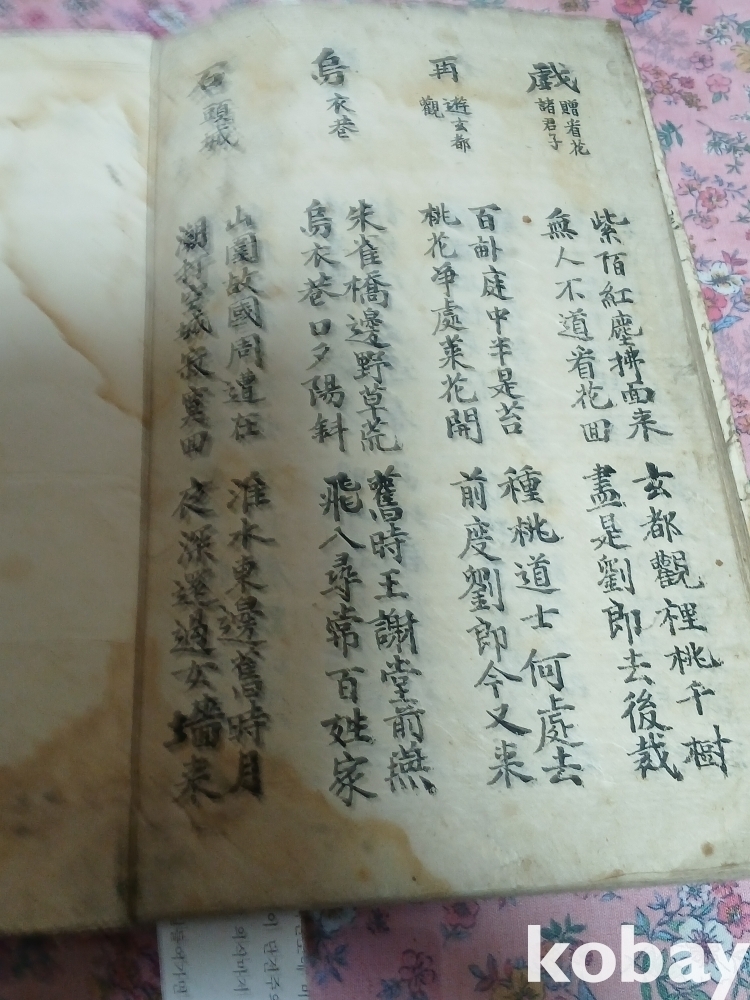 戱贈看花
諸君子
紫陌紅塵拂面来 玄都觀裡桃千樹
無人不道看花回 盡是劉郎去後栽
再遊玄都
觀
百畝庭中半是苔 種桃道士何處去
桃花净處菜花開 前度劉郎今又来
烏衣巷
朱雀橋邊野草荒 舊時王謝堂前燕
烏衣巷口夕陽斜 飛入尋常百姓家
石頭城
山圍故國周遭在 淮水東邊舊時月
潮打空城寂寞回 夜深還過女墻来
kobay